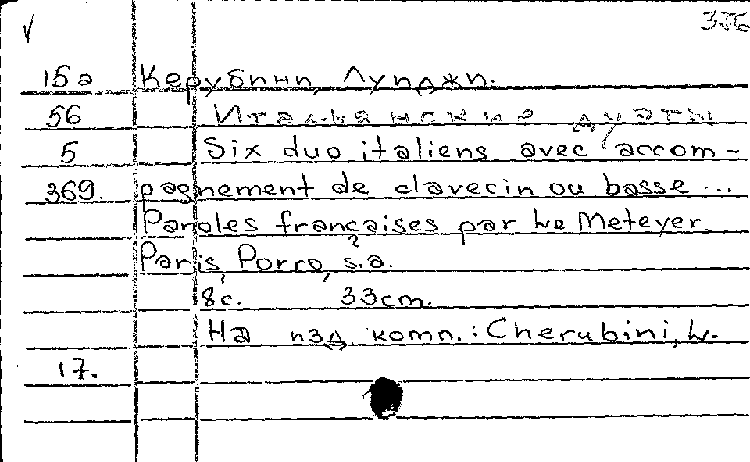 √ 336
15а Керубини, Луиджи.
56 Итальянские дуэты
5 Six duo italiens avec accom-
369. pagnement de clavecin ou basse...
Paroles francaises par Le Meteyer.
Paris, Porro, s.a.
8с. 33cm.
На изд. комп.: Cherubini, L.
17.